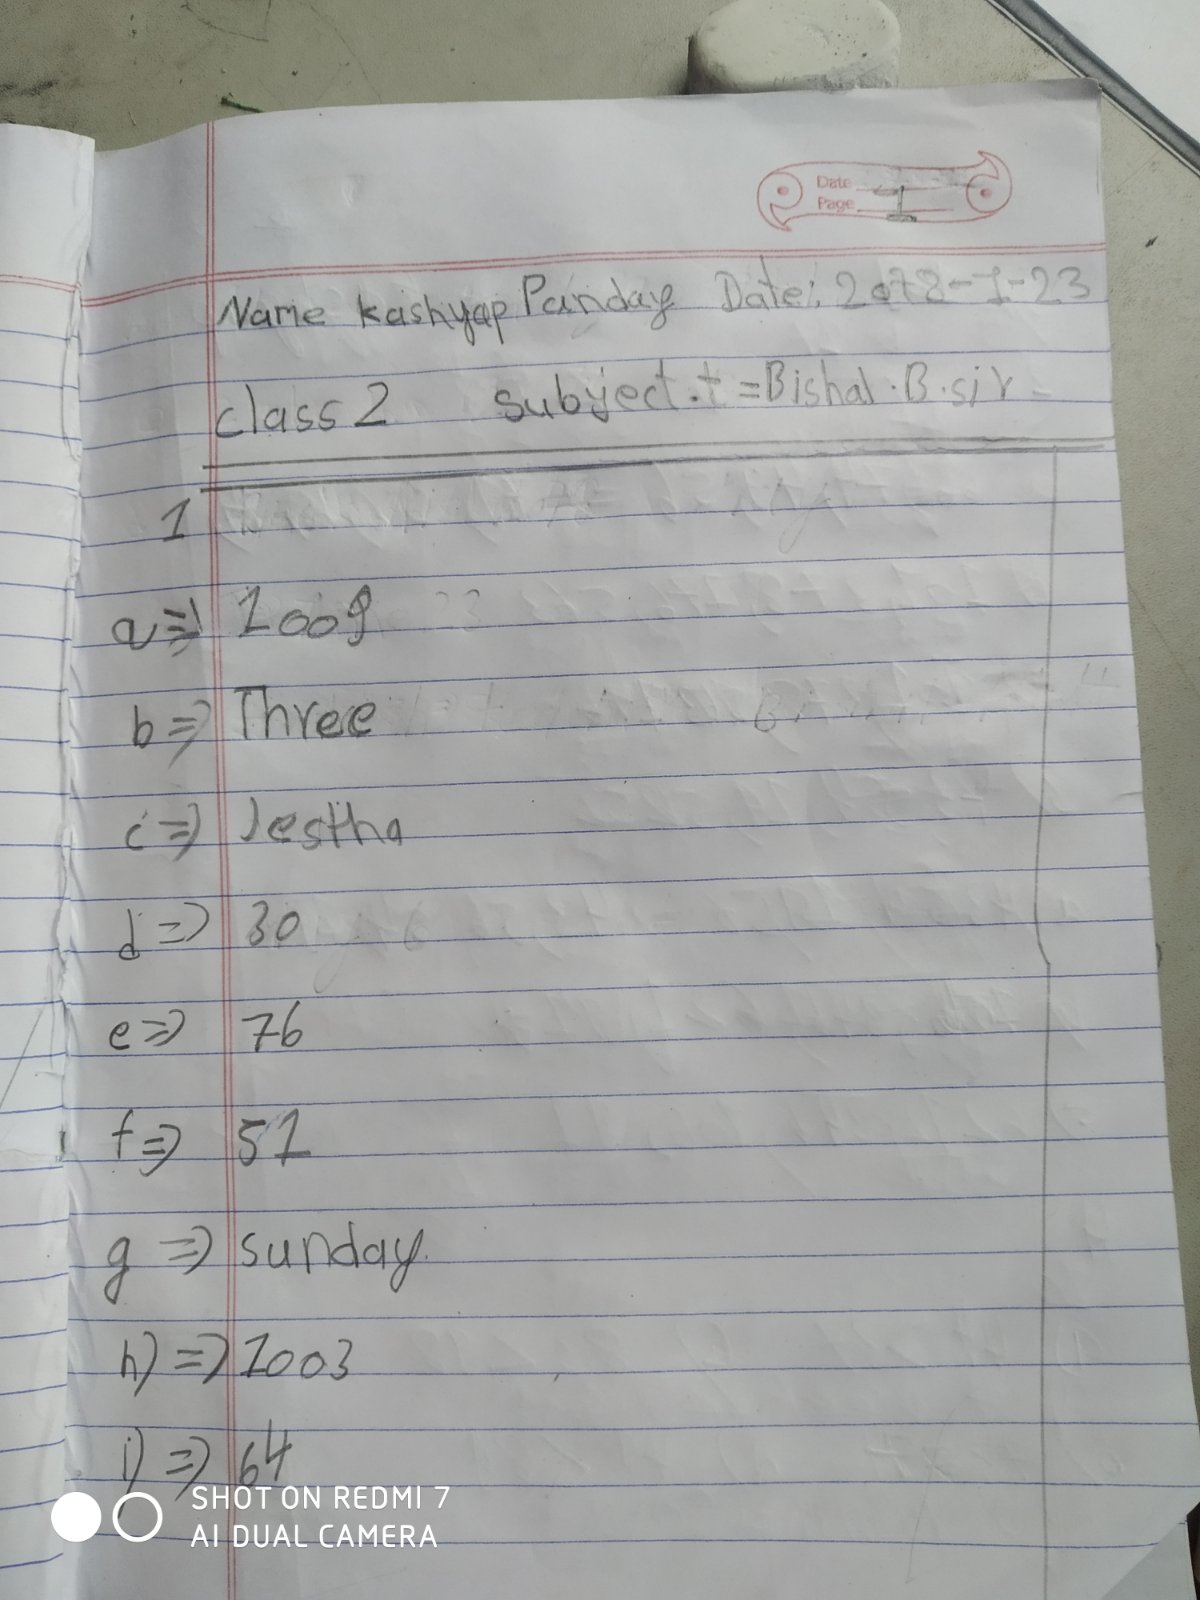 Date
Page 1
Name Kashyap Panday Date: 2078-1-23
class 2 subject.t = Bishal .B.sir
1
a => 1009
b => Three
c => Jestha
d => 30
e => 76
f => 51
g => sunday.
h) => 1003
i) => 64
SHOT ON REDMI 7
AI DUAL CAMERA